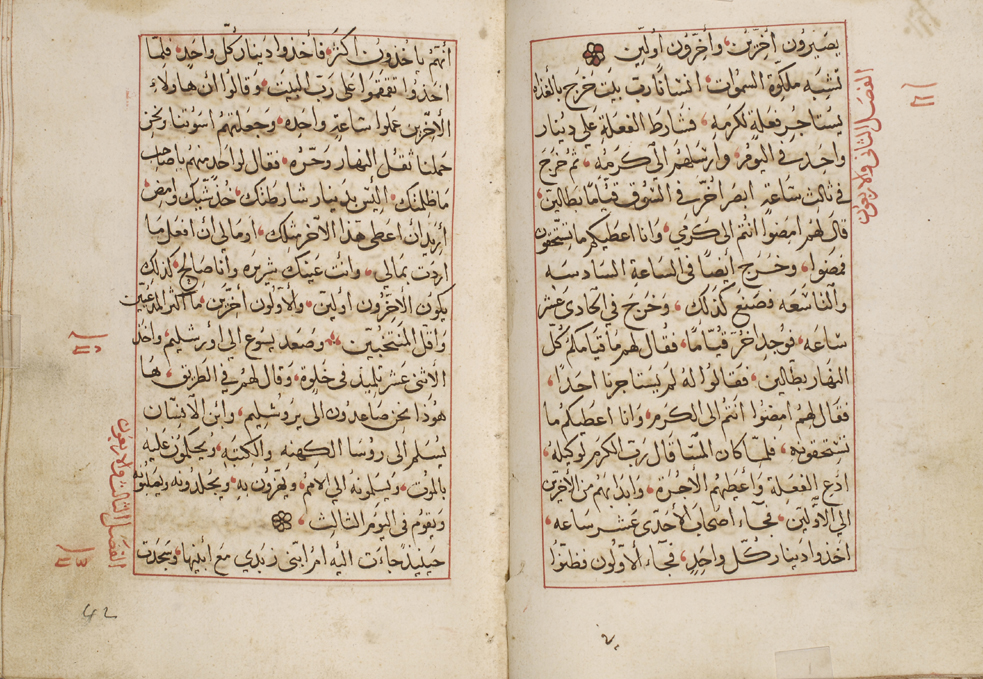 يصيرون اخرين، وأخرون أولين
تشبه ملكوة السموات، انسانا رب بيت خرج بالغداه
يستاجر فعلة لكرمه، فشارط الفعلة على دينار
واحد في اليوم، وأرسلهم الى كرمه، ثم خرج
في ثالث ساعه ابصر اخر في السوق قياما بطالين،
قال لهم امضوا انتم الى كرمي، وانا اعطيكم ما تستحقون
فمضوا، وخرج أيضا في الساعة السادسه
والتاسعه فصنع كذلك، وخرج في الحادى عشر
ساعه، فوجد اخر قياما، فقال لهم ما قيامكم كل
النهار بطالين، فقالوا له لم يستاجرنا احدا،
فقال لهم امضوا انتم الى الكرم، وانا اعطيكم ما
تستحقونه، فلما كان المسا قال رب الكرم لوكيله،
ادع الفعلة وأعطهم الأجرة، وابدا بهم من الأخرين
الى الأولين، فجاء اصحاب الأحدى عشر ساعه،
اخدوا دينار كل واحد، فجاء الاولون فظنوا
الفصل الثانى والاربعون
أنهم ياخدون أكثر، فأخدوا دينار كل واحد، فلما
اخدوا تقمقموا على رب البيت، وقالوا أن هاولاء
الأخرين عملوا ساعة واحده، وجعلتهم اسوتنا ونحن
حملنا ثقل النهار وحره، فقال لواحد منهم يا صاحب
ما ظلمتك، اليس بدينار شارطتك، خد شيك وامض،
أريد ان اعطى هذا الاخر متلك، او مالي أن افعل ما
اردت بمالي، وانت عينك شريره وأنا صالح، كذلك
يكون الاخرون اولين، والاولون أخرين، ما اكثر المدعيين
واقل المنتخبين، وصعد يسوع الى أورشليم، واخد
الاثنى عشر تلميذ في خلوة، وقال لهم في الطريق، ها
هوذا نحن صاعدون الى يروشليم، وابن الانسان
يسلم الى روسا الكهنه والكتبه، ويحكمون عليه
بالموت، ويسلمونه الى الامم، ويهزون به، ويجلدونه ويصلبونه
ويقوم في اليوم الثالث،
حينيذ جاءت اليه ام ابنى زبدي مع أبنيها، وسجدت
الفصل الثالث والاربعون
42